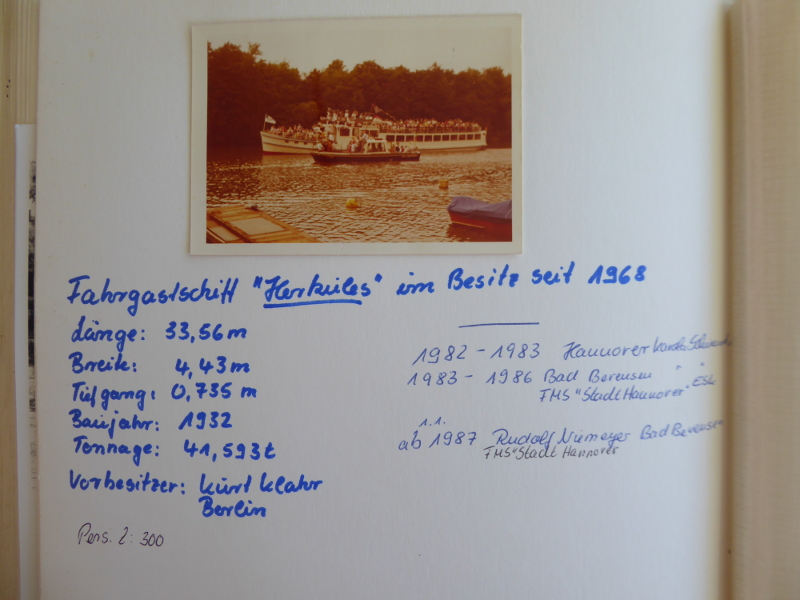 Fahrgastschiff "Herkules" im Besitz seit 1968
Länge: 33,56 m
Breite: 4,43 m
Tiefgang: 0,735 m
Baujahr: 1932
Tonnage: 41,593 t
Vorbesitzer: Kurt Klahr
Berlin
Pers. Z: 300
1982 - 1983 Hannover
1983 - 1986 Bad Bevensen " "
FMS "Stadt Hannover" ESK
1.1.
ab 1987 Rudolf Niemeyer Bad Bevensen
FMS "Stadt Hannover